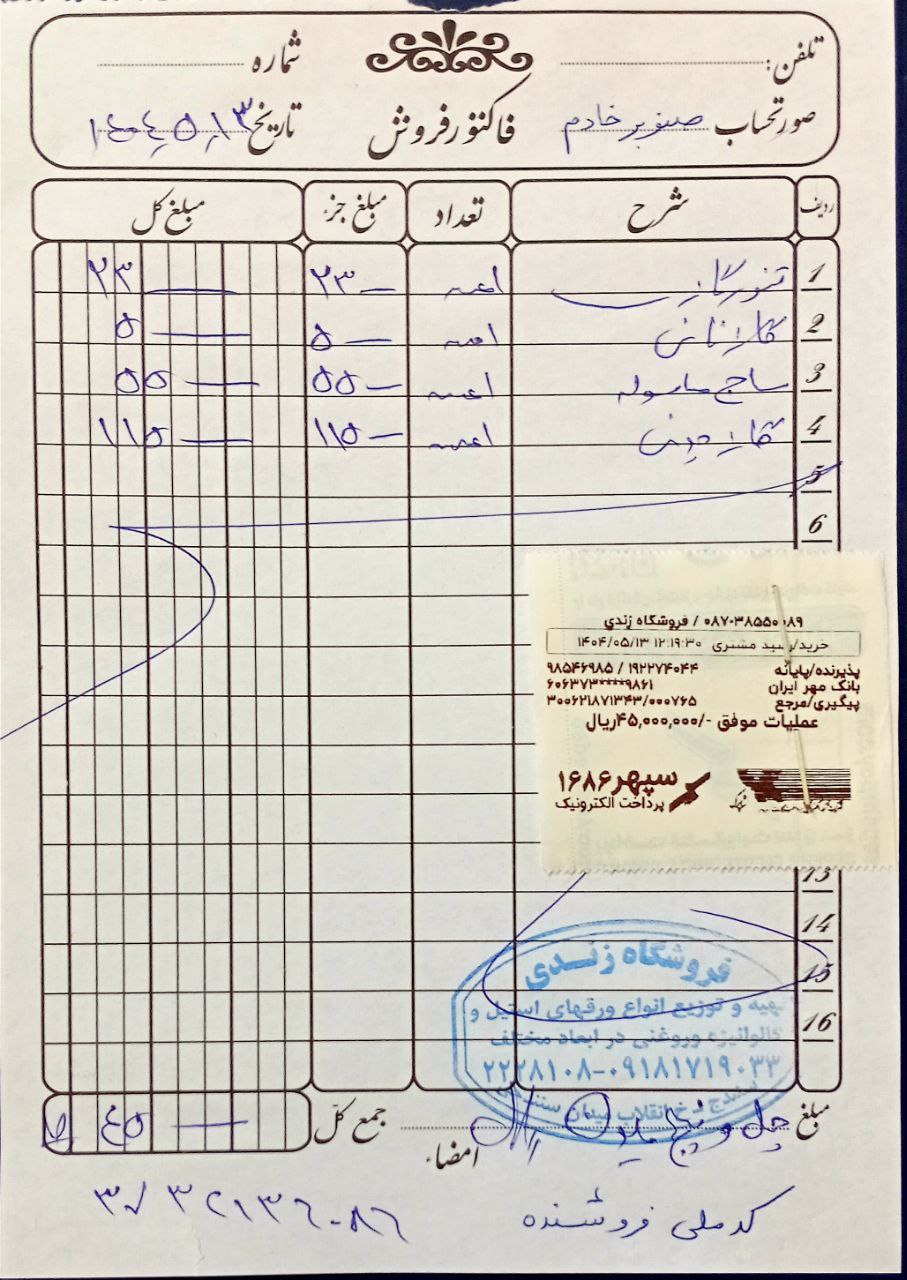 تلفن: شماره
صورتحساب صنوبر خادم فاکتور فروش تاریخ ۱۴۰۴,۵,۱۳
ردیف شرح تعداد مبلغ جزء مبلغ کل
1 تنور گازی ۱عدد ۲۳ — ۲۳ —
2 ۱عدد ۵ — ۵ —
3 ساج ماسوله ۱عدد ۵۵ — ۵۵ —
4 ۱عدد ۱۱۵ — ۱۱۵ —
5
6
۰۸۷-۳۸۵۵۰ ۸۹ / فروشگاه زندی
خرید/رسید مشتری ۱۲:۱۹:۳۰ ۱۴۰۴/۰۵/۱۳
پذیرنده/پایانه ۱۹۲۲۷۴۰۴۴ / ۹۸۵۴۶۹۸۵
بانک مهر ایران ۶۰۶۳۷۳****۹۸۶۱
پیگیری/مرجع ۳۰۰۶۲۱۸۷۱۳۴۳/۰۰۰۷۶۵
عملیات موفق -/۴۵,۰۰۰,۰۰۰ریال
سپهر ۱۶۸۶
پرداخت الکترونیک
13
14
15
16
فروشگاه زندی
تهیه و توزیع انواع ورقهای استیل و
گالوانیزه وروغنی در ابعاد مختلف
۲۲۲۸۱۰۸-۰۹۱۸۱۷۱۹۰۳۳
سنندج خ انقلاب
مبلغ چهل و پنج جمع کل ۴۵ —
امضاء
کد ملی فروشنده